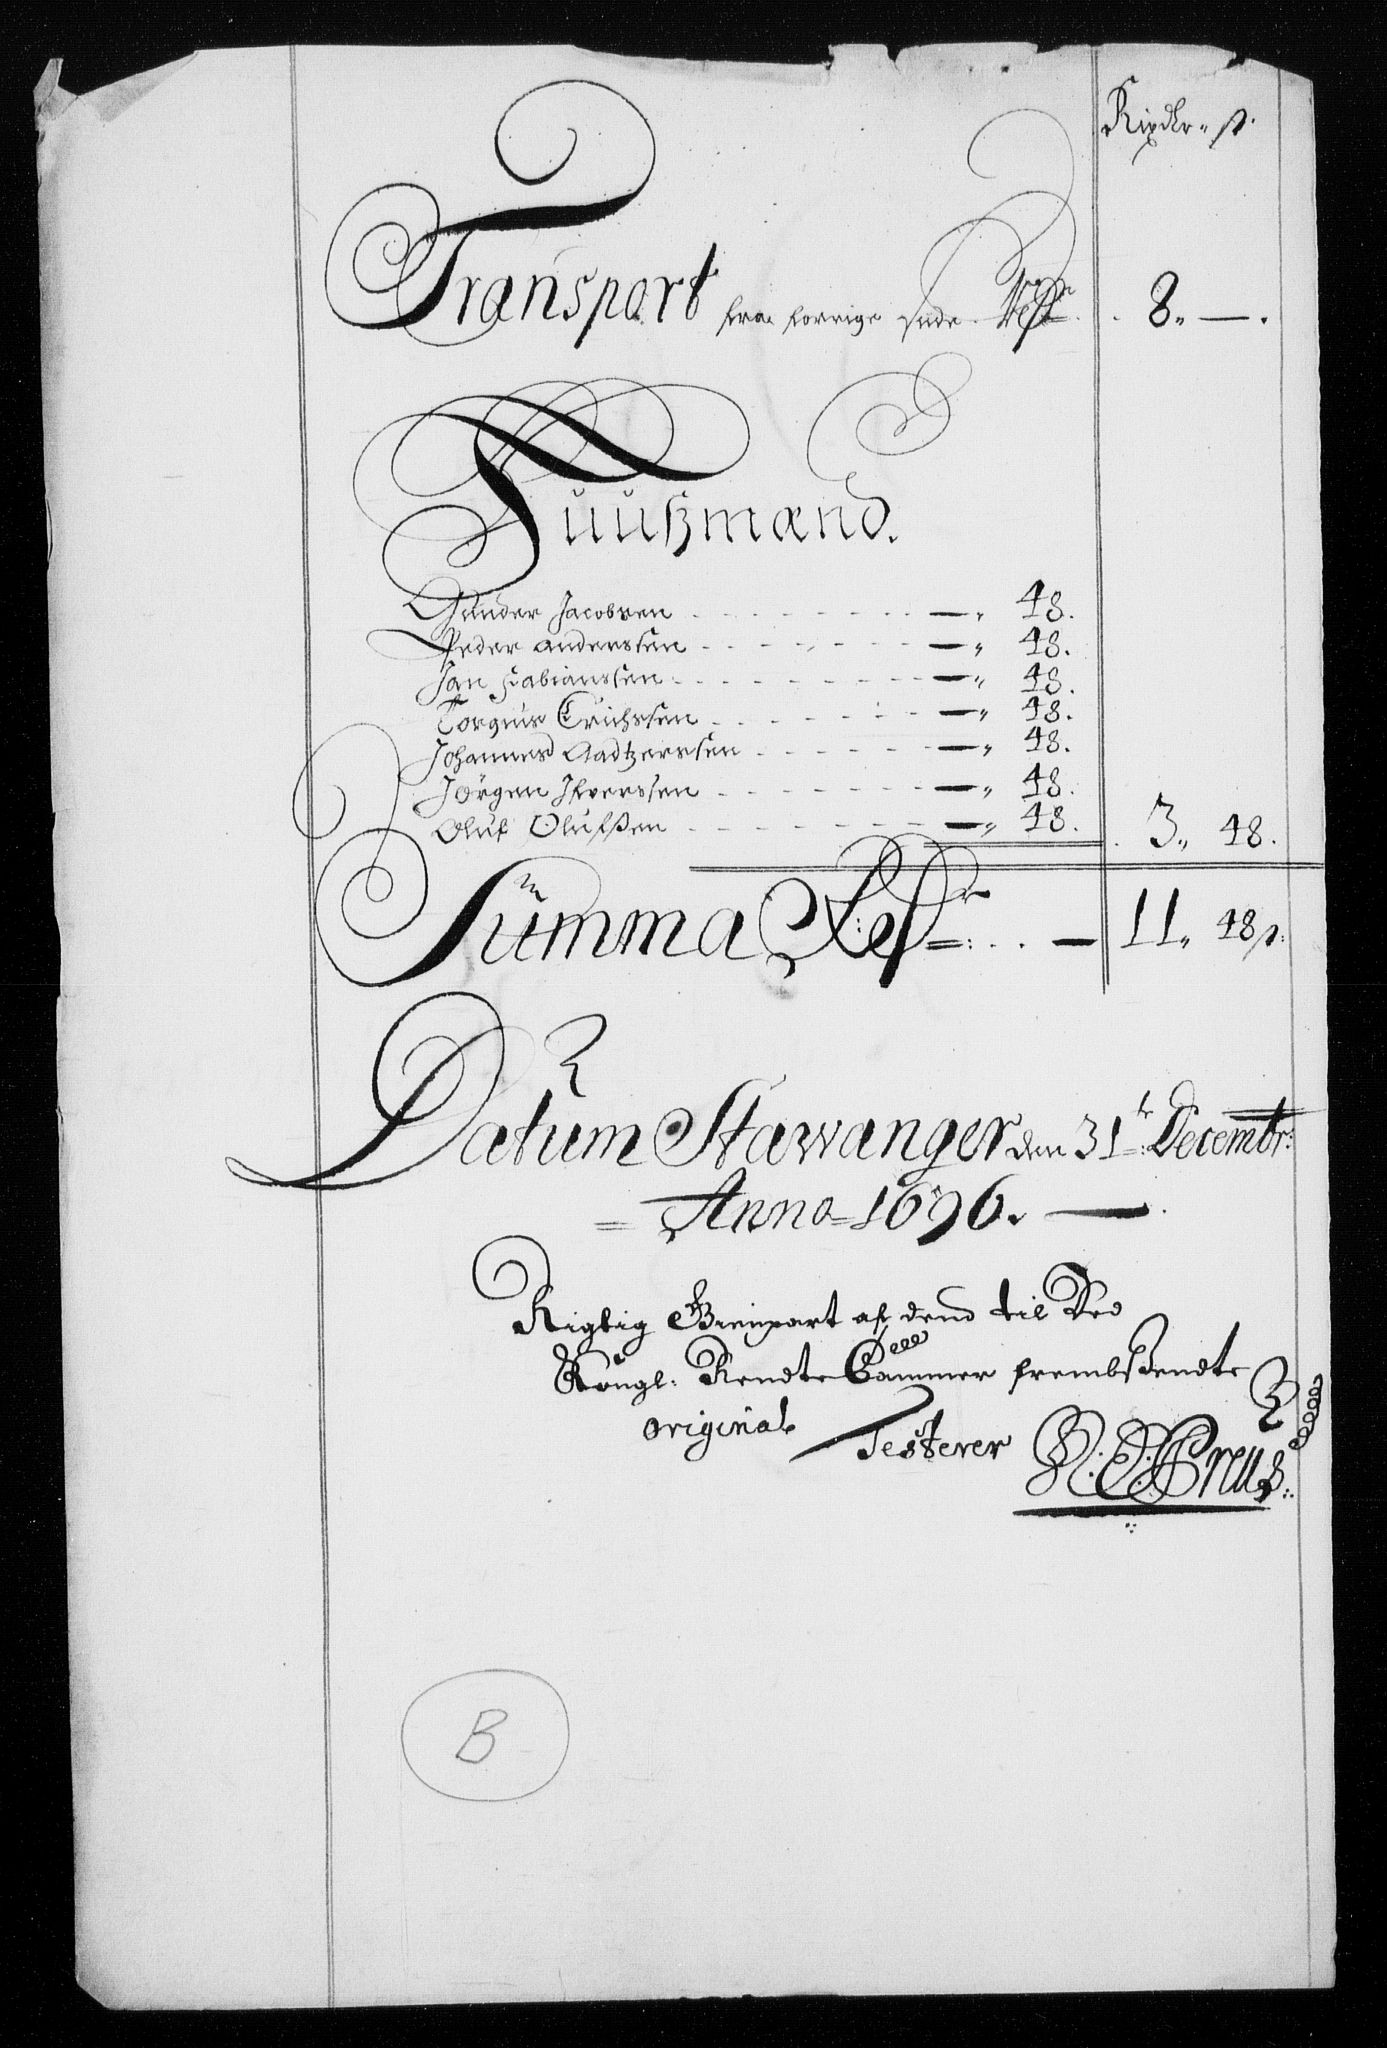 Rixdlr. ß.
Transport fra forrige side 8. —.
Huuſzmænd.
Gunder Jacobsen — 48.
Peder Anderssen — 48.
Jan Fabianssen — 48.
Torgius Erichssen — 48.
Johannes Aadtzerssen — 48.
Jørgen Ifverssen — 48.
Oluf Olufßen — 48. 3, 48.
Summa 11, 48 ß:
Datum Stawanger den 31te Decembr:
Anno 1696. —
Rigtig Gienpart af dend til Ded
Kongl: Rendte Cammer frembßendte
original Testerer
B